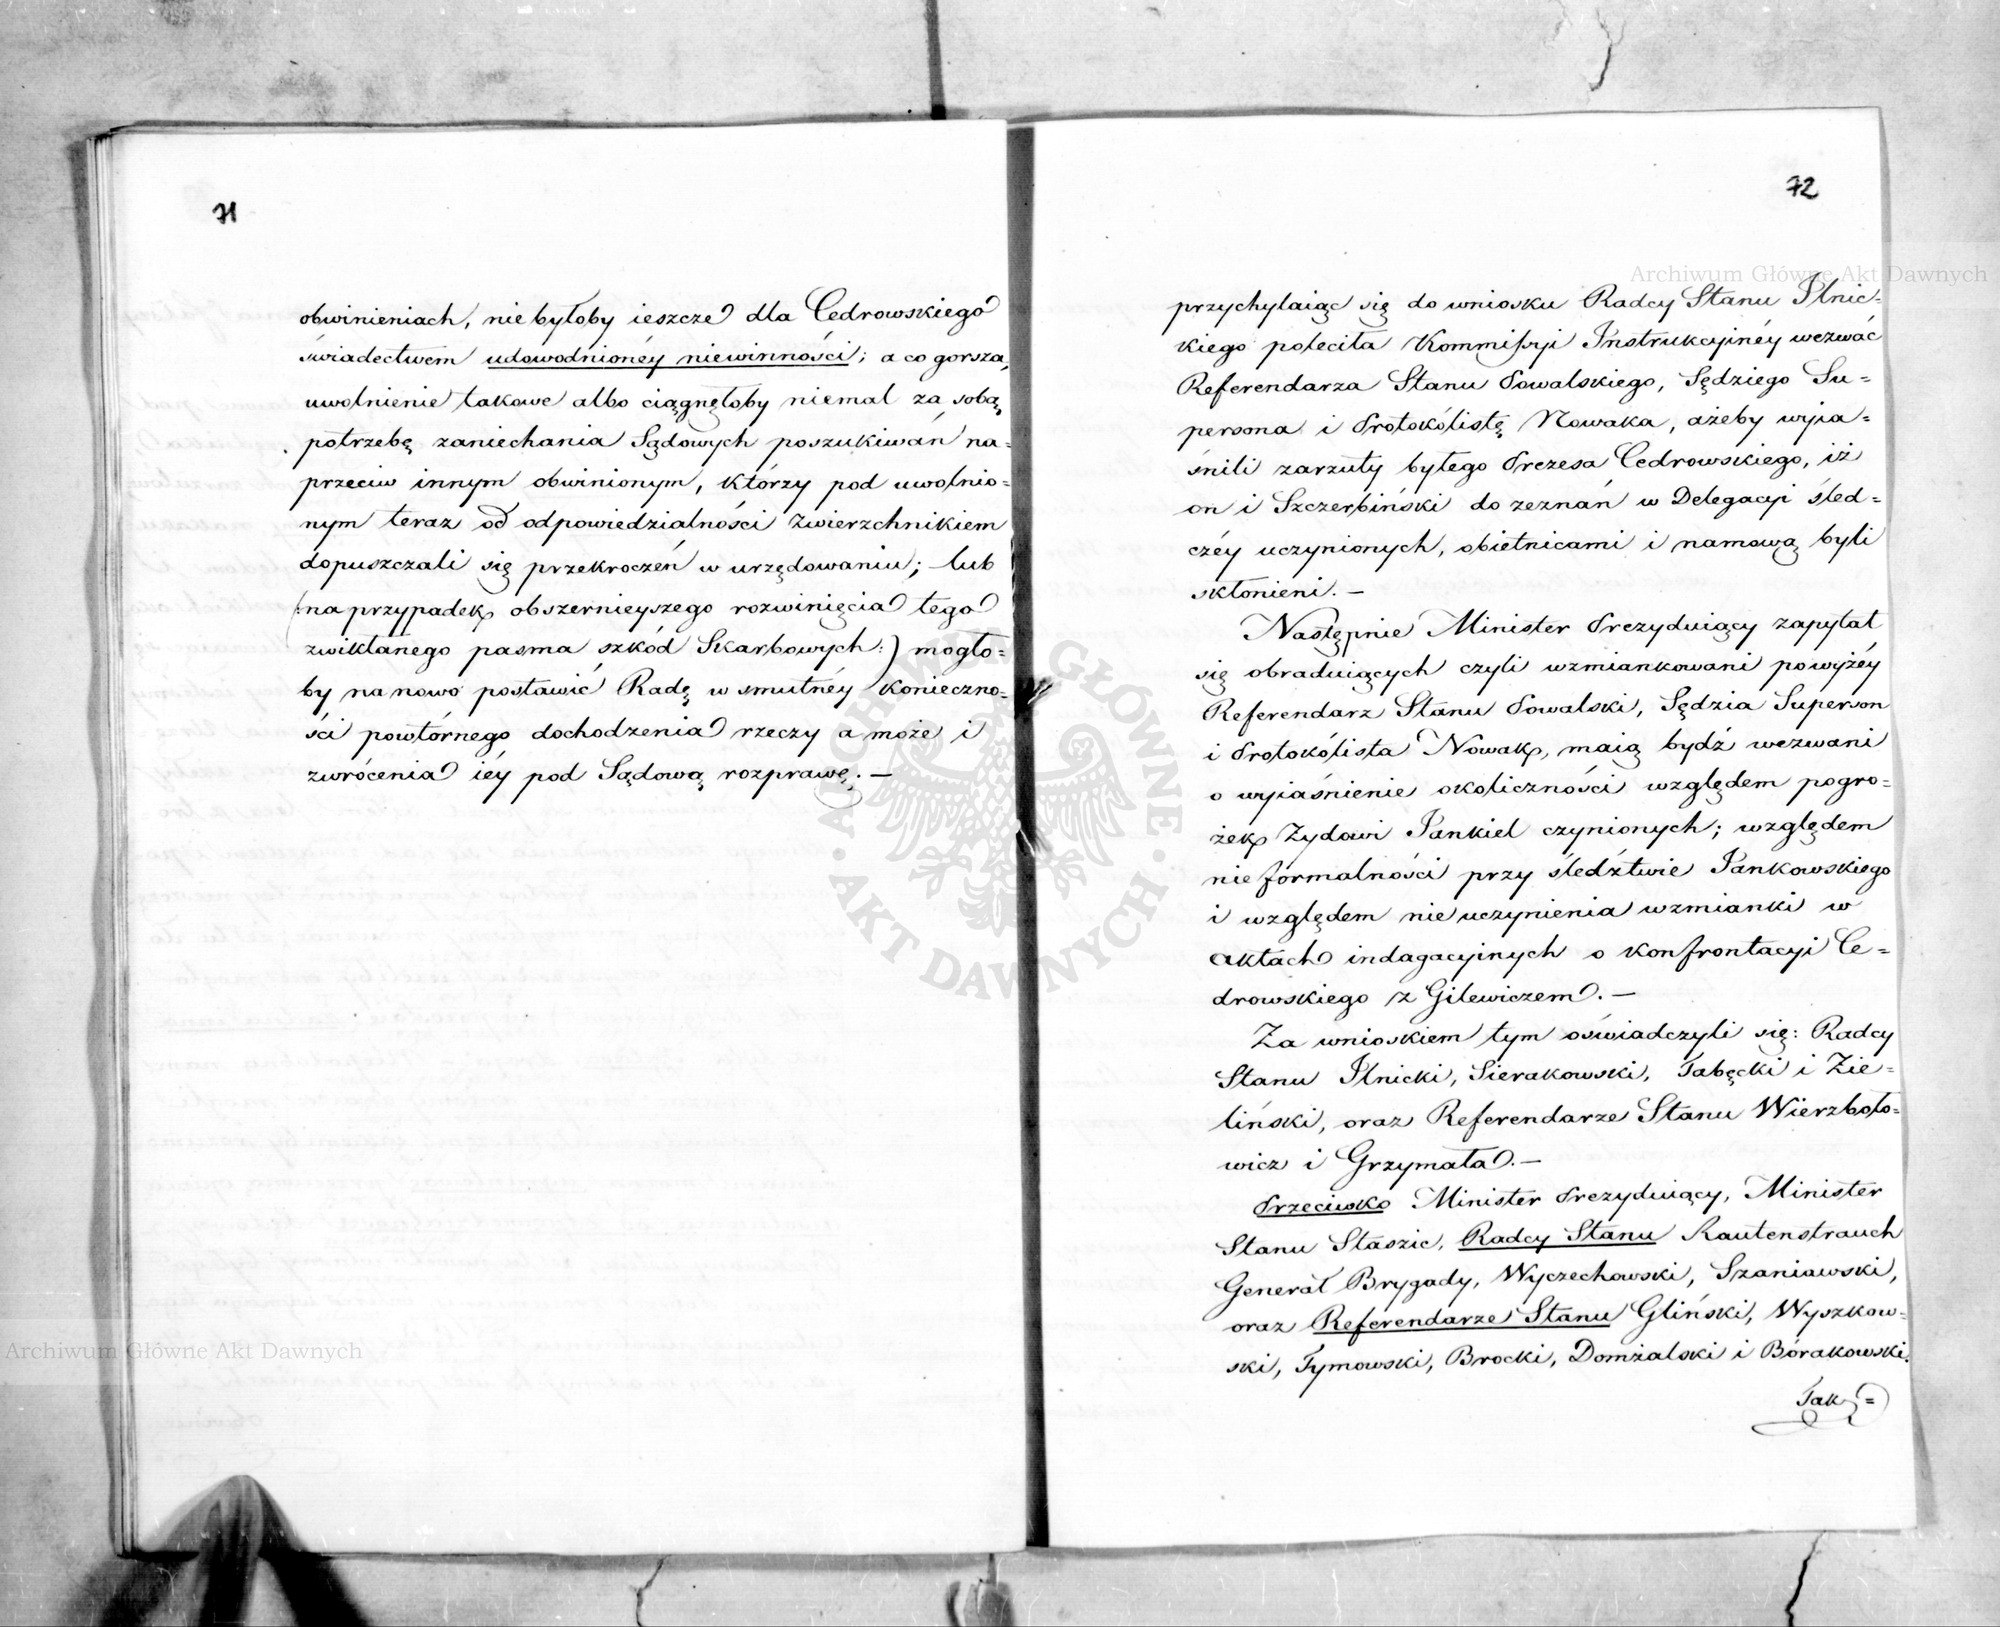 71
obwinieniach, nie byłoby ieszcze dla Cedrowskiego
świadectwem udowodnionéy niewinności; a co gorsza,
uwolnienie takowe albo ciągnęłoby niemal za sobą
potrzebę zaniechania Sądowych poszukiwań na=
przeciw innym obwinionym, którzy pod uwolnio=
nym teraz od odpowiedzialności Zwierzchnikiem
dopuszczali się przekroczeń w urzędowaniu; lub
(:na przypadek obszernieyszego rozwinięcia tego
zwikłanego pasma szkód Skarbowych:) mogło=
by na nowo postawić Radę w smutnéy konieczno=
ści powtórnego dochodzenia rzeczy a może i
zwrócenia iéy pod Sądową rozprawę. —
72
przychylaiąc się do wniosku Radcy Stanu Ilnic=
kiego poleciła Kommissyi Instrukcyinéy wezwać
Referendarza Stanu Powalskiego, Sędziego Su=
persona i Protokólistę Nowaka, ażeby wyia=
śnili zarzuty byłego Prezesa Cedrowskiego, iż
on i Szczerbiński do zeznań w Delegacyi śled=
czéy uczynionych, obietnicami i namową byli
skłonieni. —
Następnie Minister Prezyduiący zapytał
się obraduiących czyli wzmiankowani powyżéy
Referendarz Stanu Powalski, Sędzia Superson
i Protokólista Nowak, maią bydź wezwani
o wyiaśnienie okoliczności względem pogro=
żek Żydowi Jankiel czynionych; względem
nieformalności przy śledztwie Jankowskiego
i względem nieuczynienia wzmianki w
aktach indagacyinych o konfrontacyi Ce=
drowskiego z Gilewiczem. —
Za wnioskiem tym oświadczyli się: Radcy
Stanu Ilnicki, Sierakowski, Tabęcki i Zie=
liński, oraz Referendarze Stanu Wierzboło=
wicz i Grzymała. —
Przeciwko Minister Prezyduiący, Minister
Stanu Staszic, Radcy Stanu Rautenstrauch
Generał Brygady, Wyczechowski, Szaniawski,
oraz Referendarze Stanu Gliński, Wyszkow=
ski, Tymowski, Brocki, Domżalski i Bórakowski.
Tak=
Archiwum Główne Akt Dawnych
Archiwum Główne Akt Dawnych
ARCHIWUM GŁÓWNE · AKT DAWNYCH ·